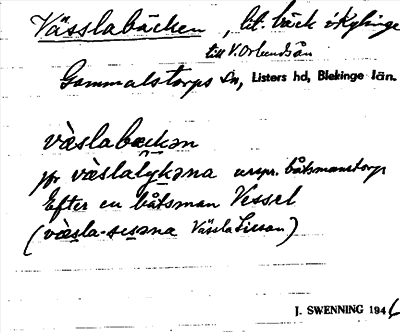 Vässlabäcken, lit. bäck i Kylinge
till V. Orlundsån
Gammalstorps sn, Listers hd, Blekinge län.
väslabäckən
jfr väslalykəna urspr. båtsmanstorp
Efter en båtsman Vessel
(väsla-sisəna Väsla Sissan)
J. SWENNING 1946